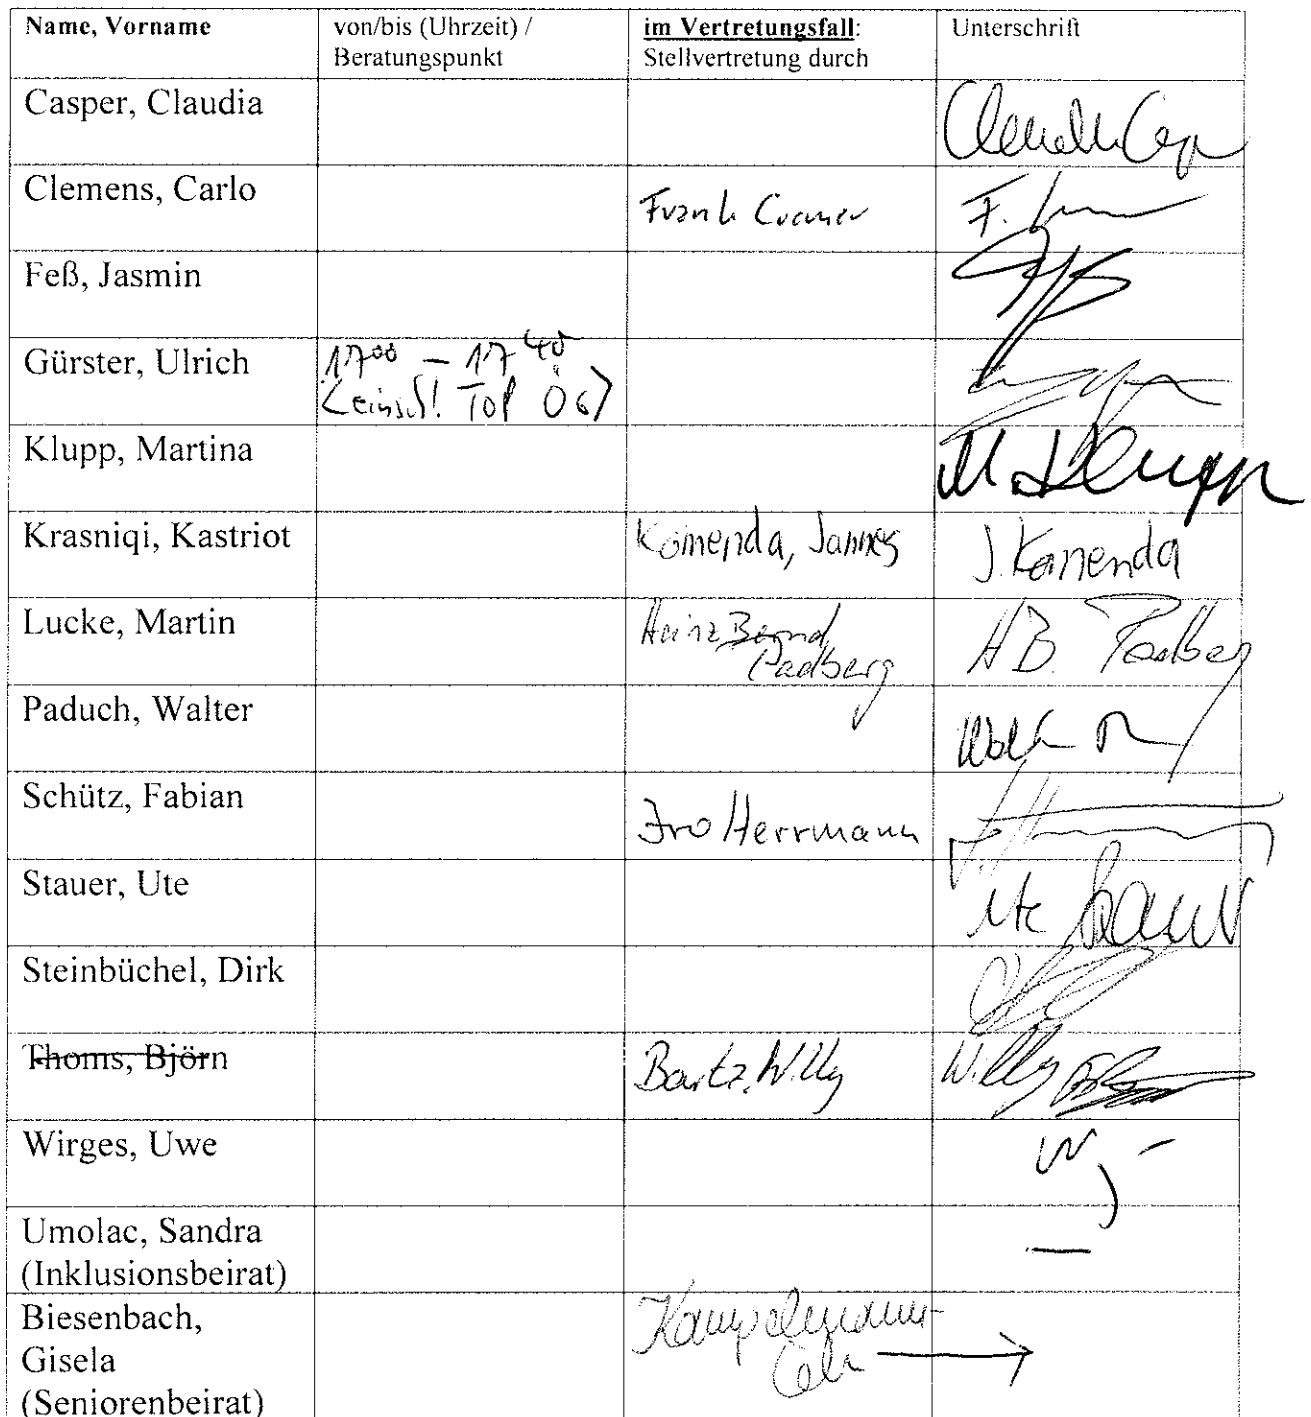 Name, Vorname von/bis (Uhrzeit) / im Vertretungsfall: Unterschrift
Beratungspunkt Stellvertretung durch
Casper, Claudia
Clemens, Carlo Frank Cremer F.
Feß, Jasmin
Gürster, Ulrich 17⁰⁰ – 17⁴⁰
(einschl. Top Ö6)
Klupp, Martina M. Klupp
Krasniqi, Kastriot Komenda, Jannes J. Komenda
Lucke, Martin Heinz Bernd H B. Padberg
Padberg
Paduch, Walter
Schütz, Fabian Iro Herrmann
Stauer, Ute Ute Stauer
Steinbüchel, Dirk
Thoms, Björn Bartz, Willy Willy
Wirges, Uwe
Umolac, Sandra —
(Inklusionsbeirat)
Biesenbach, Kampelmann-
Gisela →
(Seniorenbeirat)